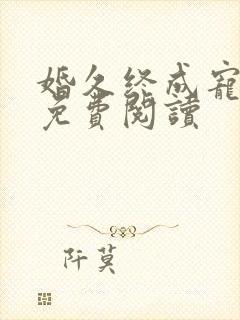 婚久终成寵
免費閱讀
阡莫